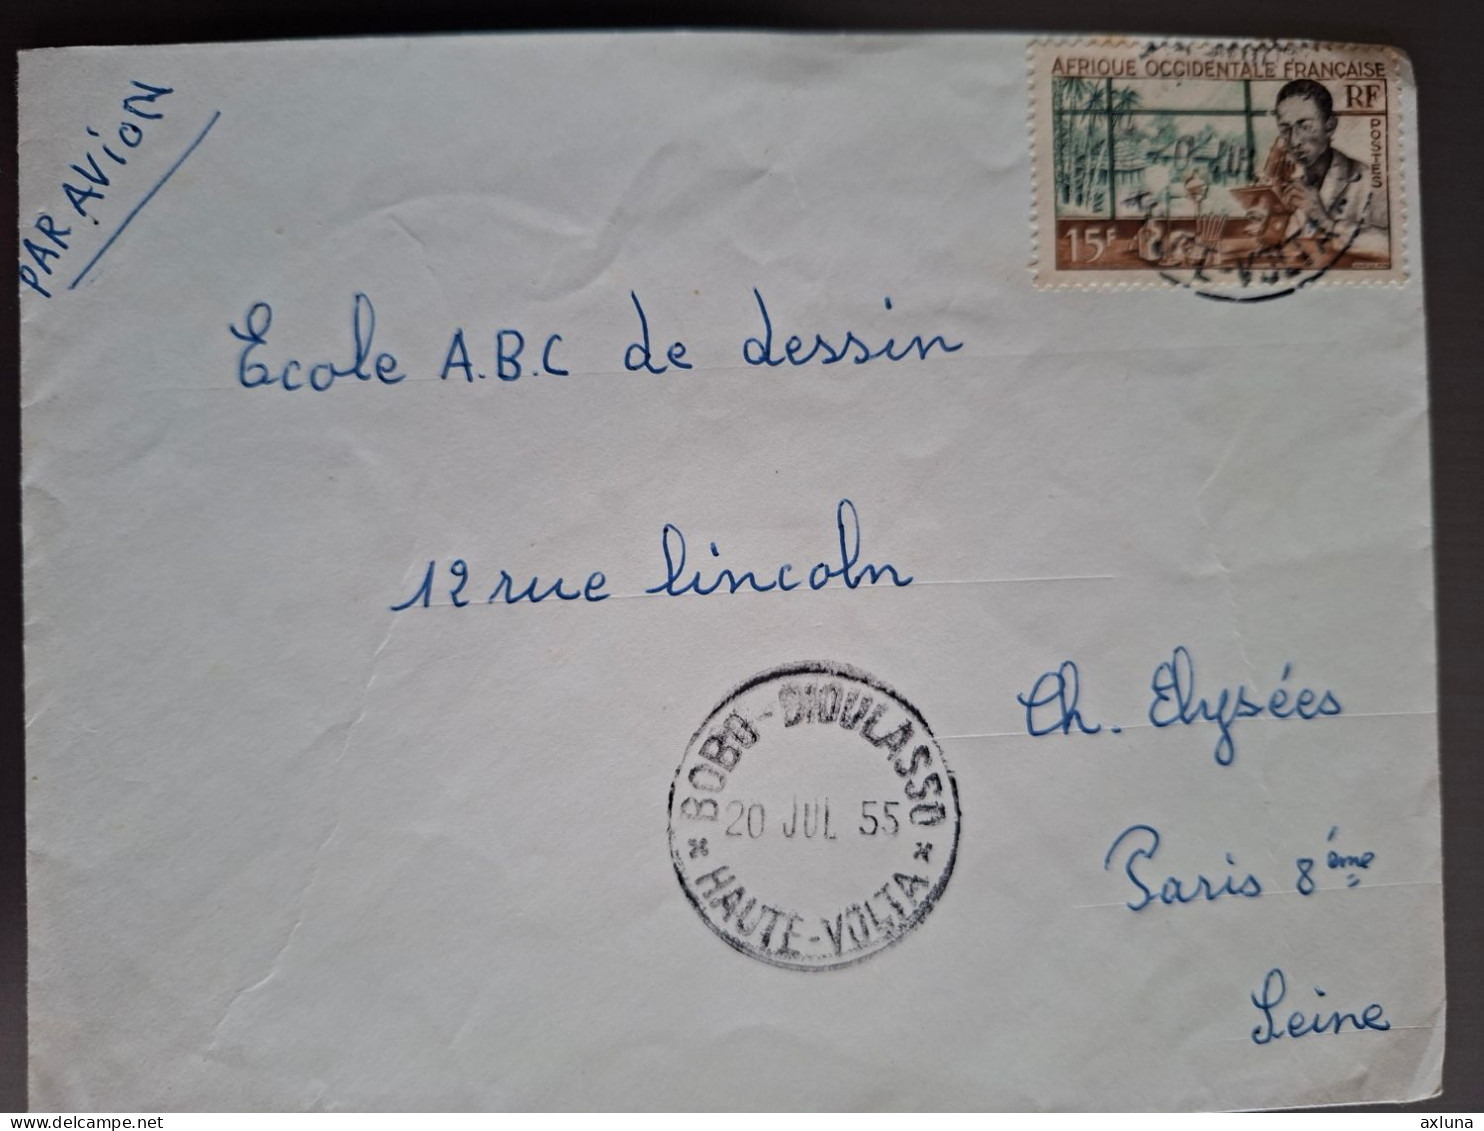 PAR AVION
AFRIQUE OCCIDENTALE FRANÇAISE
RF
POSTES
15F
Ecole A.B.C de dessin
12 rue lincoln
Ch. Elysées
Paris 8ème
Seine
BOBO-DIOULASSO
20 JUL 55
HAUTE-VOLTA
axluna